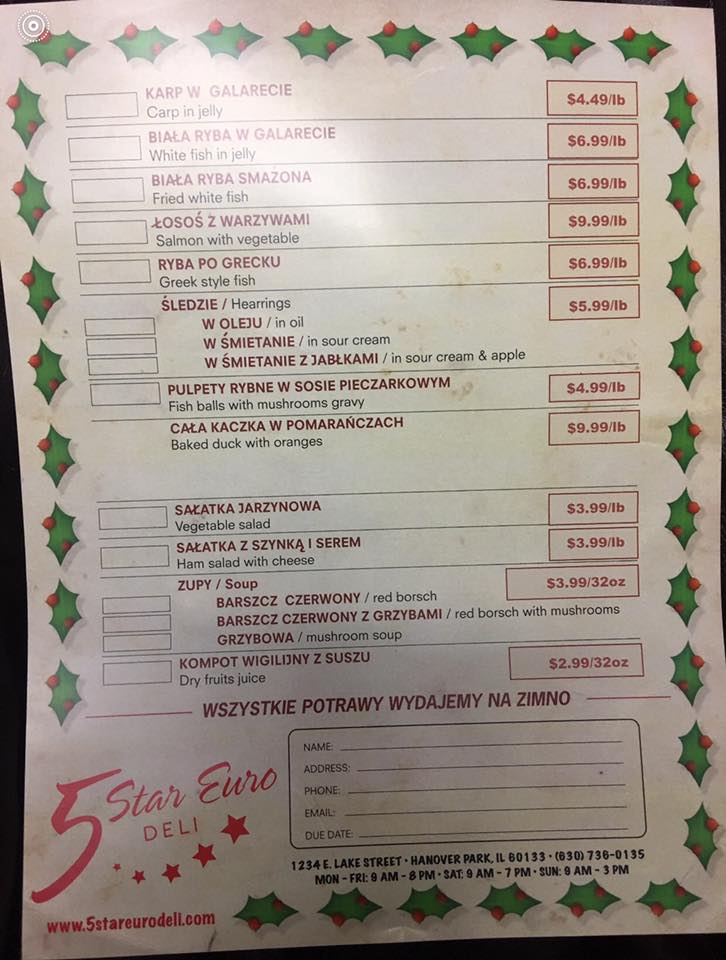 KARP W GALARECIE
Carp in jelly
$4.49/lb
BIAŁA RYBA W GALARECIE
White fish in jelly
$6.99/lb
BIAŁA RYBA SMAŻONA
Fried white fish
$6.99/lb
ŁOSOŚ Z WARZYWAMI
Salmon with vegetable
$9.99/lb
RYBA PO GRECKU
Greek style fish
$6.99/lb
ŚLEDZIE / Hearrings
$5.99/lb
W OLEJU / in oil
W ŚMIETANIE / in sour cream
W ŚMIETANIE Z JABŁKAMI / in sour cream & apple
PULPETY RYBNE W SOSIE PIECZARKOWYM
Fish balls with mushrooms gravy
$4.99/lb
CAŁA KACZKA W POMARAŃCZACH
Baked duck with oranges
$9.99/lb
SAŁATKA JARZYNOWA
Vegetable salad
$3.99/lb
SAŁATKA Z SZYNKĄ I SEREM
Ham salad with cheese
$3.99/lb
ZUPY / Soup
$3.99/32oz
BARSZCZ CZERWONY / red borsch
BARSZCZ CZERWONY Z GRZYBAMI / red borsch with mushrooms
GRZYBOWA / mushroom soup
KOMPOT WIGILIJNY Z SUSZU
Dry fruits juice
$2.99/32oz
WSZYSTKIE POTRAWY WYDAJEMY NA ZIMNO
5 Star Euro
DELI
NAME:
ADDRESS:
PHONE:
EMAIL:
DUE DATE:
1234 E. LAKE STREET • HANOVER PARK, IL 60133 • (630) 736-0135
MON - FRI: 9 AM - 8 PM • SAT: 9 AM - 7 PM • SUN: 9 AM - 3 PM
www.5stareurodeli.com